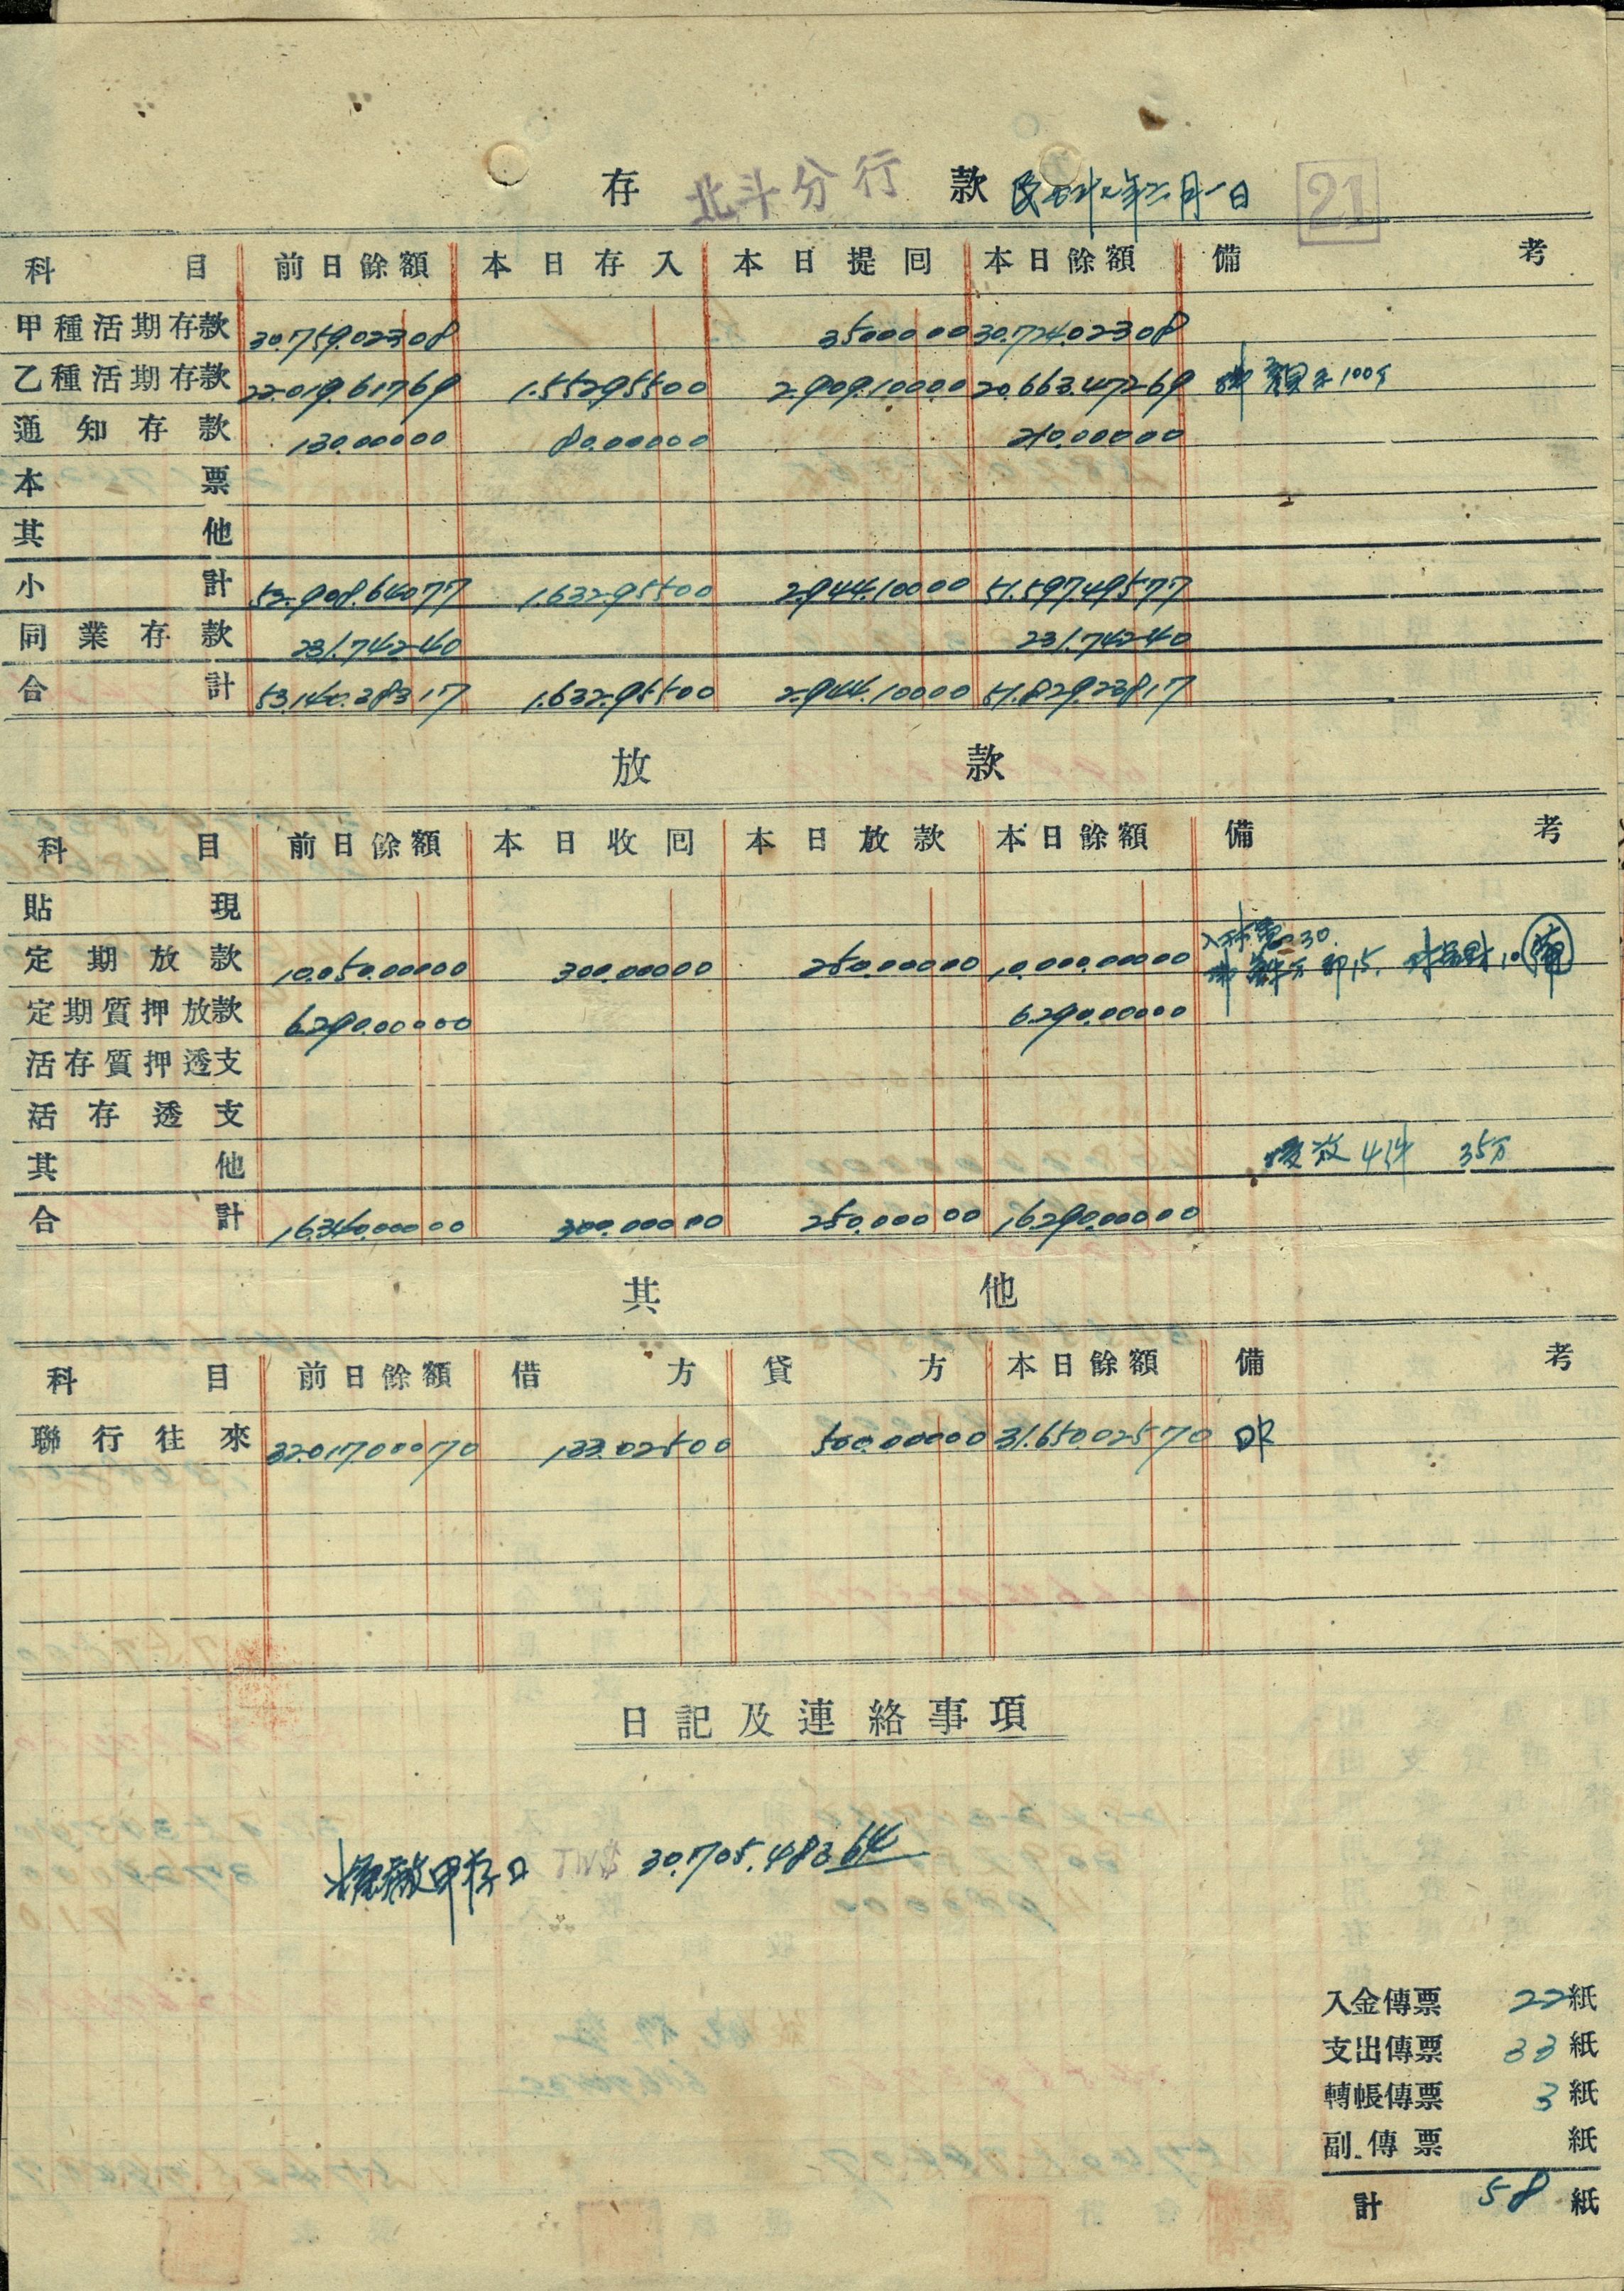 存 北斗分行 款 年二月一日 21
科目 前日餘額 本日存入 本日提回 本日餘額 備考
甲種活期存款 30.759.023 08 35000 00 30.724.023 08
乙種活期存款 22.019.617 69 1.552.955 00 2.909.100 00 20.663.472 69 100万
通知存款 130.000 00 80.000 00 210.000 00
本票
其他
小計 52.908.640 77 1.632.955 00 2.944.100 00 51.597.495 77
同業存款 231.742 40 231.742 40
合計 53.140.383 17 1.632.955 00 2.944.100 00 51.829.238 17
放款
科目 前日餘額 本日收回 本日放款 本日餘額 備考
貼現
定期放款 10.050.000 00 300.000 00 250.000 00 10.000.000 00 30. 15. 10
定期質押放款 6.290.000 00 6.290.000 00
活存質押透支
活存透支
其他 放 4件 35万
合計 16.340.000 00 300.000 00 250.000 00 16.290.000 00
其他
科目 前日餘額 借方 貸方 本日餘額 備考
聯行往來 32.017.000 70 133.025 00 500.000 00 31.650.025 70
日記及連絡事項
甲存口 TW$ 30.705.483 64
入金傳票 22紙
支出傳票 33紙
轉帳傳票 3紙
副傳票 紙
計 58紙